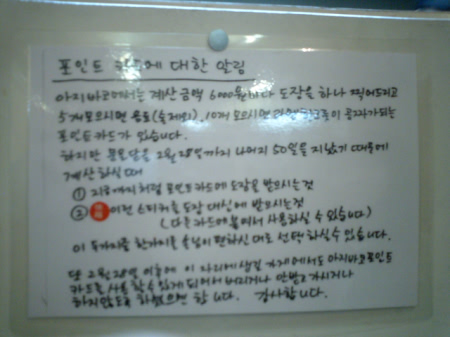 포인트 카드에 대한 알림
아지바코에서는 계산 금액 6000원마다 도장을 하나 찍어드리고
5개 모으시면 음료(술제외), 10개 모으시면 공짜가 되는
포인트 카드가 있습니다.
하지만 2월 28일까지 나머지 50일을 지났기 때문에
계산하실 때
① 지금까지처럼 포인트카드에 도장을 받으시는 것
② 이런 스티커를 도장 대신에 받으시는 것
(다른 카드에 사용하실 수 있습니다)
이 두가지중 한가지를 손님이 편하신 대로 선택 하실 수 있습니다.
단 2월 28일 이후에 이 자리에 생길 가게에서도 아지바코 포인트
카드를 사용 할 수 있게 되어서 버리거나 가시거나
하지않도록 하셨으면 합니다. 감사합니다.